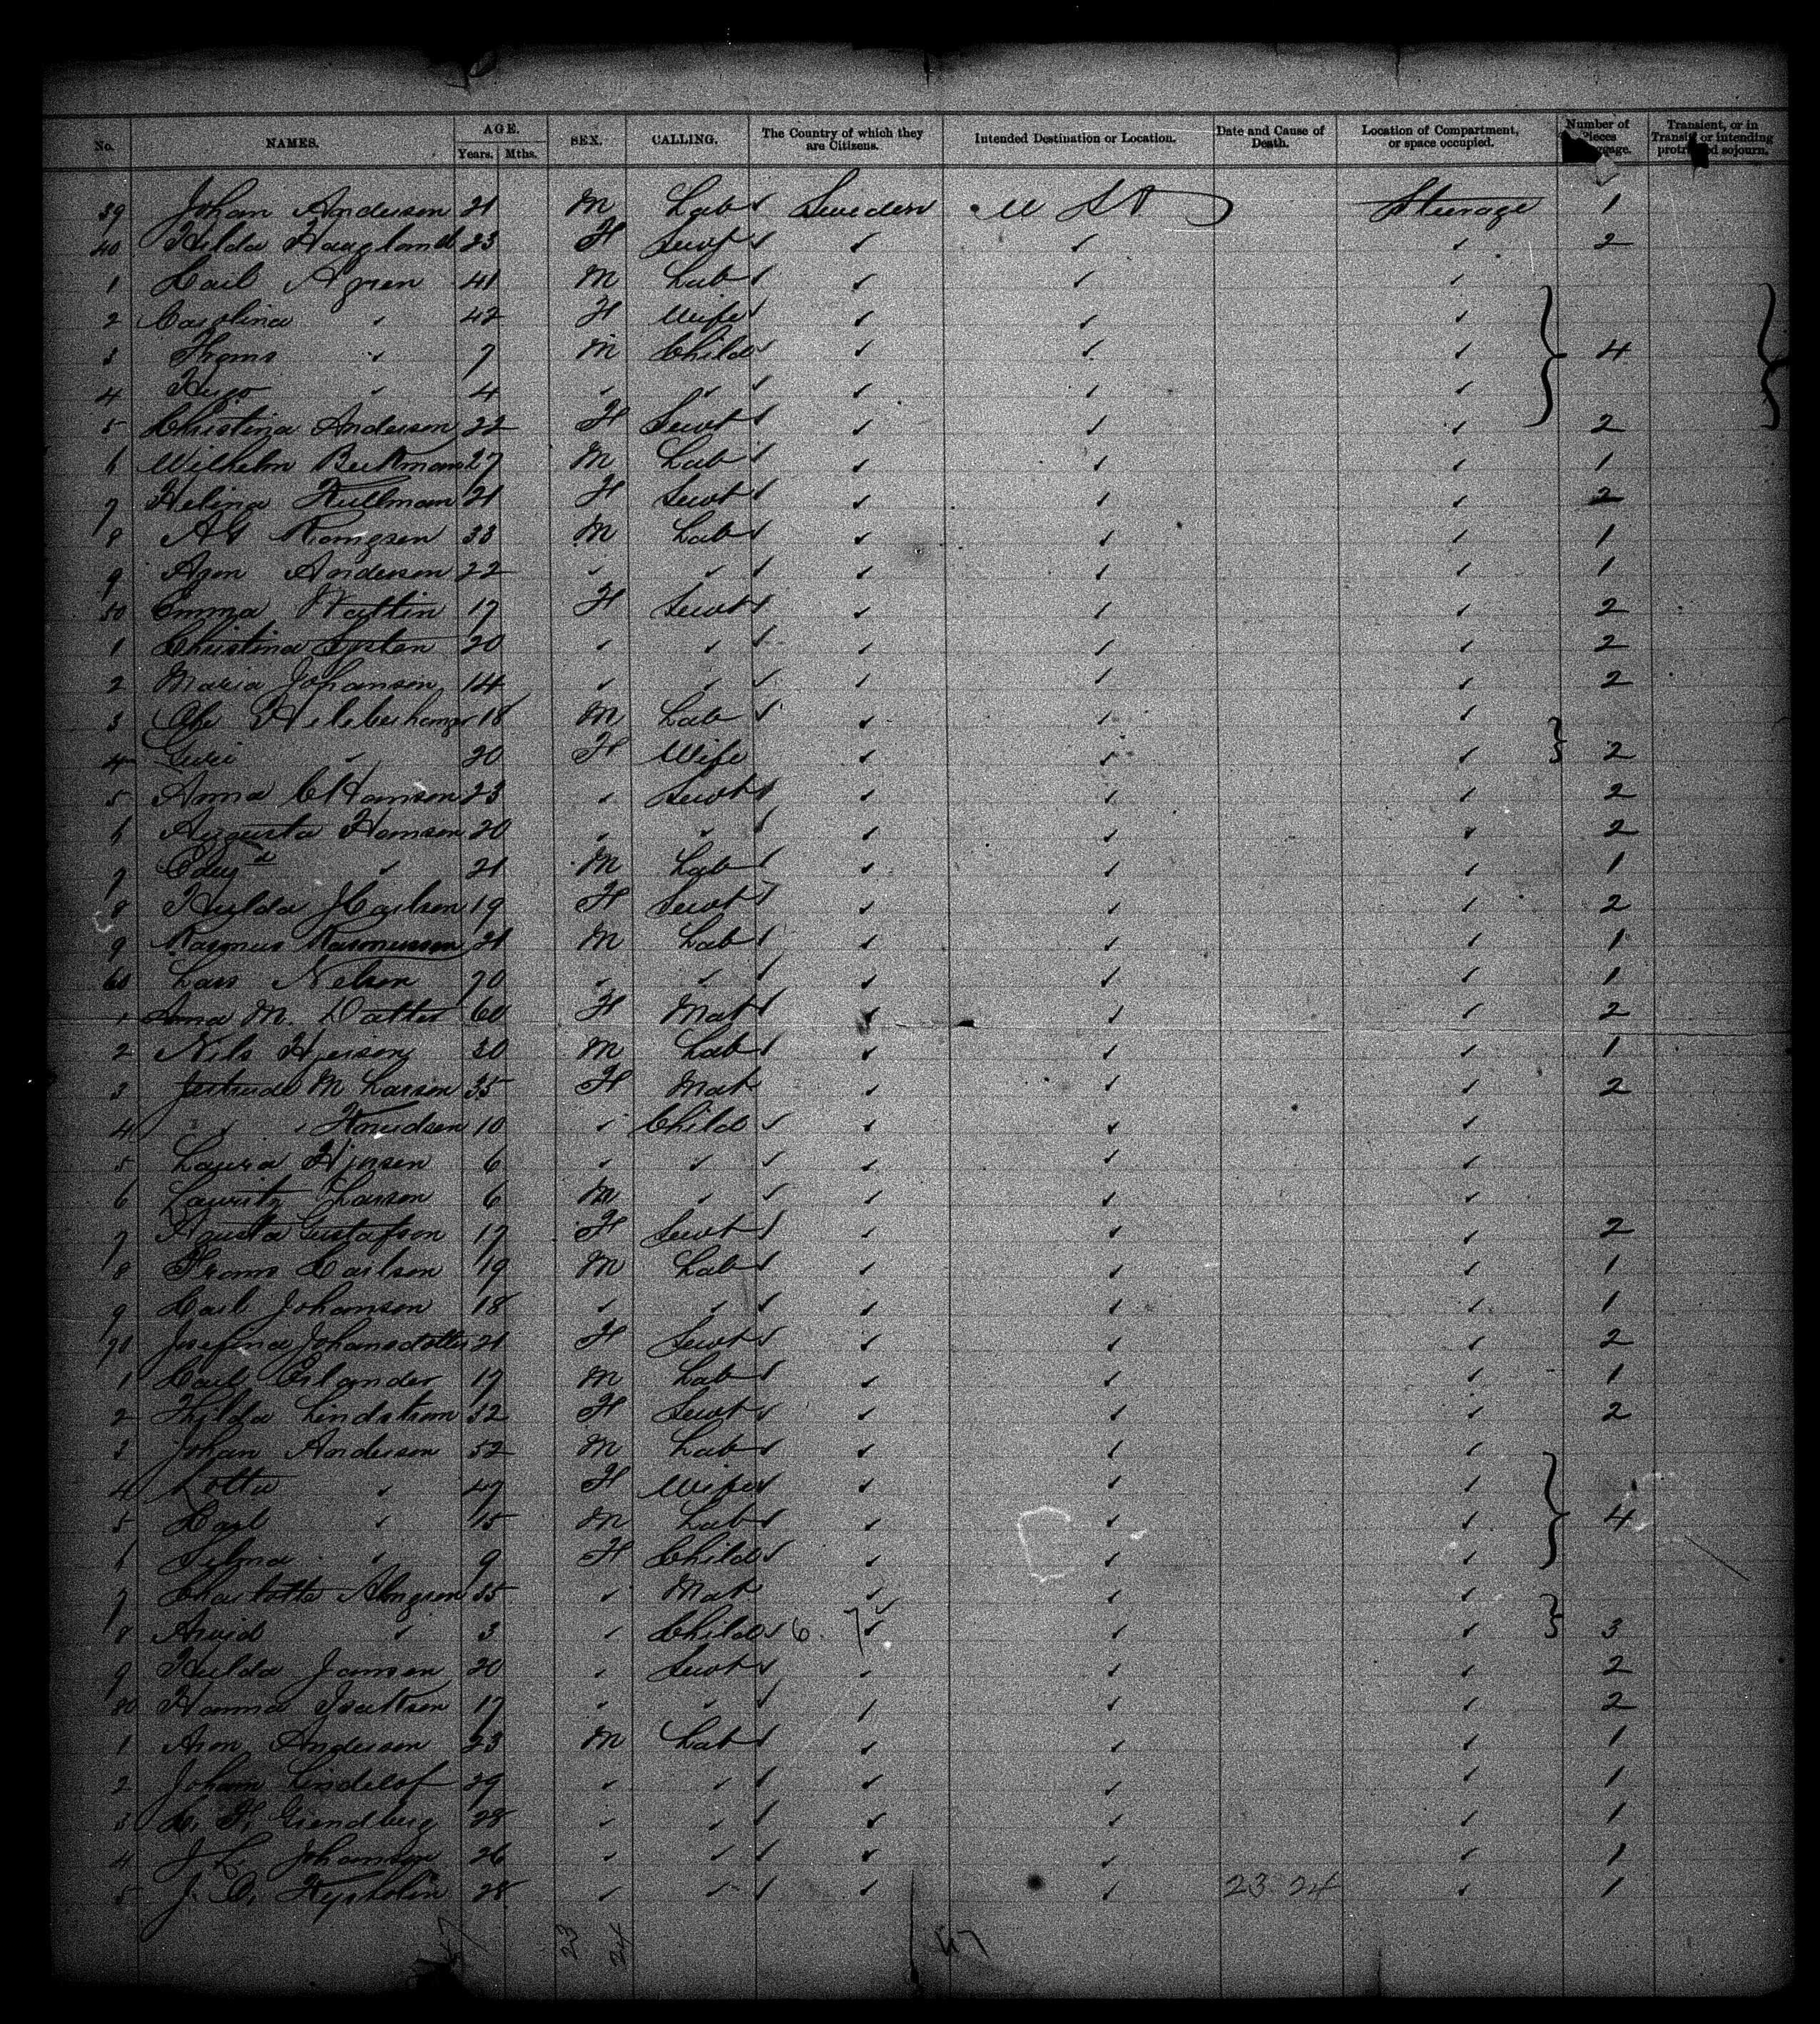 No. NAMES. AGE. Years. Mths. SEX. CALLING. The Country of which they are Citizens. Intended Destination or Location. Date and Cause of Death. Location of Compartment, or space occupied. Number of Pieces Transient, or in Transit or intending protracted sojourn.
39 Johan Anderson 21 M Lab Sweden U St Steerage 1
40 Hilda 23 F Servt ✓ ✓ ✓ 2
1 Carl Agren 41 M Lab ✓ ✓ ✓
2 Carolina ✓ 42 F Wife ✓ ✓ ✓
3 Frans ✓ 7 M Child ✓ ✓ ✓ 4
4 Hugo ✓ 4 ✓ ✓ ✓ ✓ ✓
5 Christina Anderson 22 F Servt ✓ ✓ ✓ 2
6 Wilhelm 27 M Lab ✓ ✓ ✓ 1
7 Helina Kullman 21 F Servt ✓ ✓ ✓ 2
8 33 M Lab ✓ ✓ ✓ 1
9 Aron Anderson 22 ✓ ✓ ✓ ✓ ✓ 1
50 Emma Wallin 17 F Servt ✓ ✓ ✓ 2
1 Christina 20 ✓ ✓ ✓ ✓ ✓ 2
2 Maria Johanson 14 ✓ ✓ ✓ ✓ ✓ 2
3 18 M Lab ✓ ✓ ✓
4 ✓ 20 F Wife ✓ ✓ ✓ 2
5 Anna C Hanson 23 ✓ Servt ✓ ✓ ✓ 2
6 Augusta Hanson 20 ✓ ✓ ✓ ✓ ✓ 2
7 ✓ 21 M Lab ✓ ✓ ✓ 1
8 Hulda J Carlson 19 F Servt ✓ ✓ ✓ 2
9 Rasmus Rasmussen 21 M Lab ✓ ✓ ✓ 1
60 Lars Nelson 70 ✓ ✓ ✓ ✓ ✓ 1
1 Anna M. Datter 60 F Mat ✓ ✓ ✓ 2
2 Nils 30 M Lab ✓ ✓ ✓ 1
3 Jertrude M Larson 35 F Mat ✓ ✓ ✓ 2
4 ✓ ✓ Knudsen 10 ✓ Child ✓ ✓ ✓
5 Laura 6 ✓ ✓ ✓ ✓ ✓
6 Lauritz Larson 6 M ✓ ✓ ✓ ✓
7 Agusta Gustafson 17 F Servt ✓ ✓ ✓ 2
8 Frans Carlson 19 M Lab ✓ ✓ ✓ 1
9 Carl Johanson 18 ✓ ✓ ✓ ✓ ✓ 1
70 Josefina Johansdotter 21 F Servt ✓ ✓ ✓ 2
1 Carl Erlander 17 M Lab ✓ ✓ ✓ 1
2 Thilda Lindstrom 32 F Servt ✓ ✓ ✓ 2
3 Johan Anderson 52 M Lab ✓ ✓ ✓
4 Lotta ✓ 47 F Wife ✓ ✓ ✓
5 Carl ✓ 15 M Lab ✓ ✓ ✓ 4
6 Selma ✓ 9 F Child ✓ ✓ ✓
7 Charlotta Almgren 35 ✓ Mat ✓ ✓ ✓
8 Arvid ✓ 3 ✓ Child 6 7 ✓ ✓ ✓ 3
9 Hulda Jansen 20 ✓ Servt ✓ ✓ ✓ 2
80 Hanna Isakson 17 ✓ ✓ ✓ ✓ ✓ 2
1 Aron Anderson 23 M Lab ✓ ✓ ✓ 1
2 Johan Lindelof 29 ✓ ✓ ✓ ✓ ✓ 1
3 28 ✓ ✓ ✓ ✓ ✓ 1
4 J L Johanson 26 ✓ ✓ ✓ ✓ ✓ 1
5 28 ✓ ✓ ✓ ✓ 23 24 ✓ 1
47 23 24 47